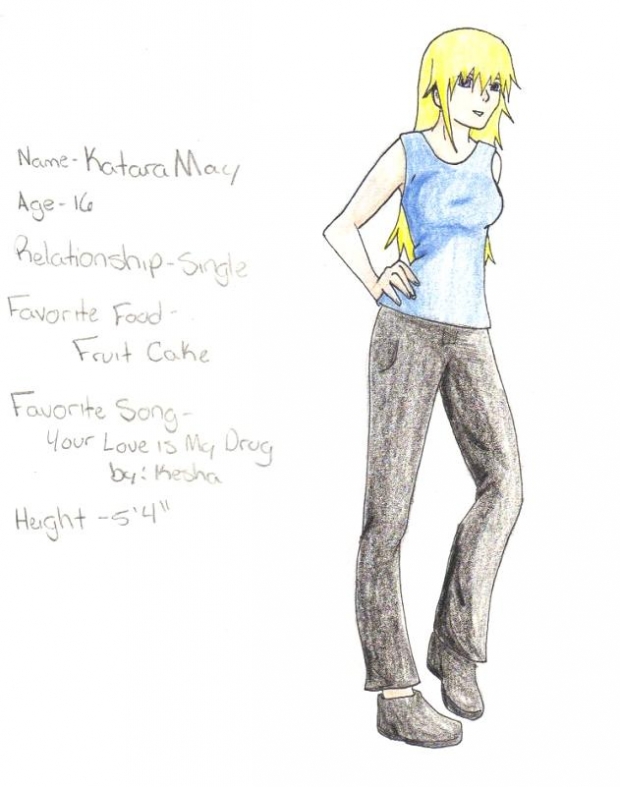 Name- Katara May
Age- 16
Relationship-Single
Favorite Food-
Fruit Cake
Favorite Song-
Your Love is My Drug
by: Kesha
Height -5'4"